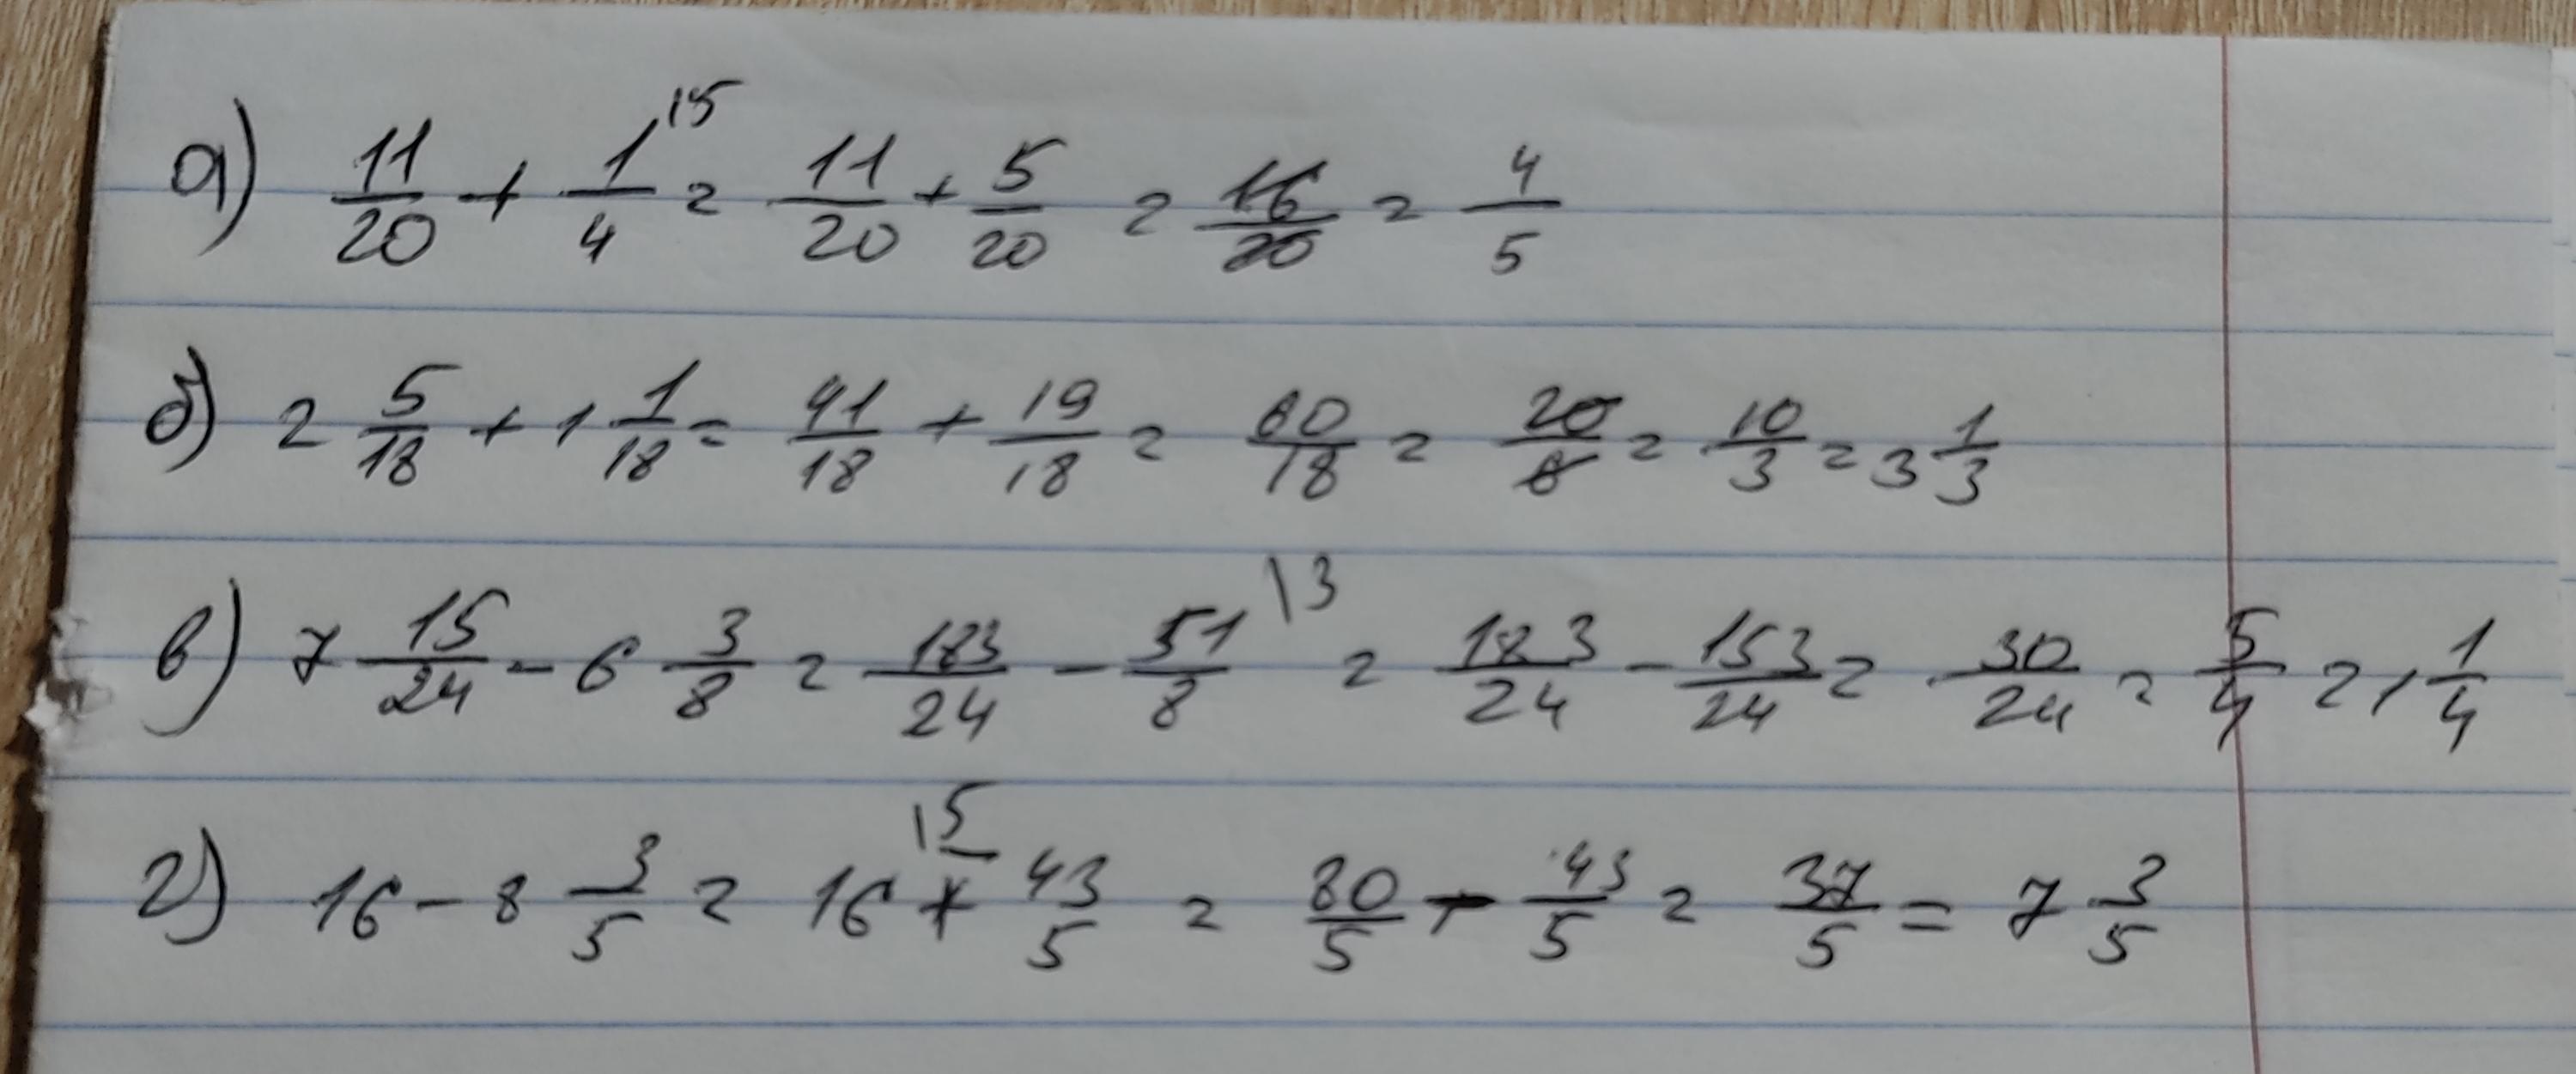 а) 11/20 + 1/4 \5 = 11/20 + 5/20 = 16/20 = 4/5
б) 2 5/18 + 1 1/18 = 41/18 + 19/18 = 60/18 = 20/6 = 10/3 = 3 1/3
в) 7 15/24 - 6 3/8 = 183/24 - 51/8 \3 = 183/24 - 153/24 = 30/24 = 5/4 = 1 1/4
г) 16 - 8 3/5 = 16 \5 - 43/5 = 80/5 - 43/5 = 37/5 = 7 3/5